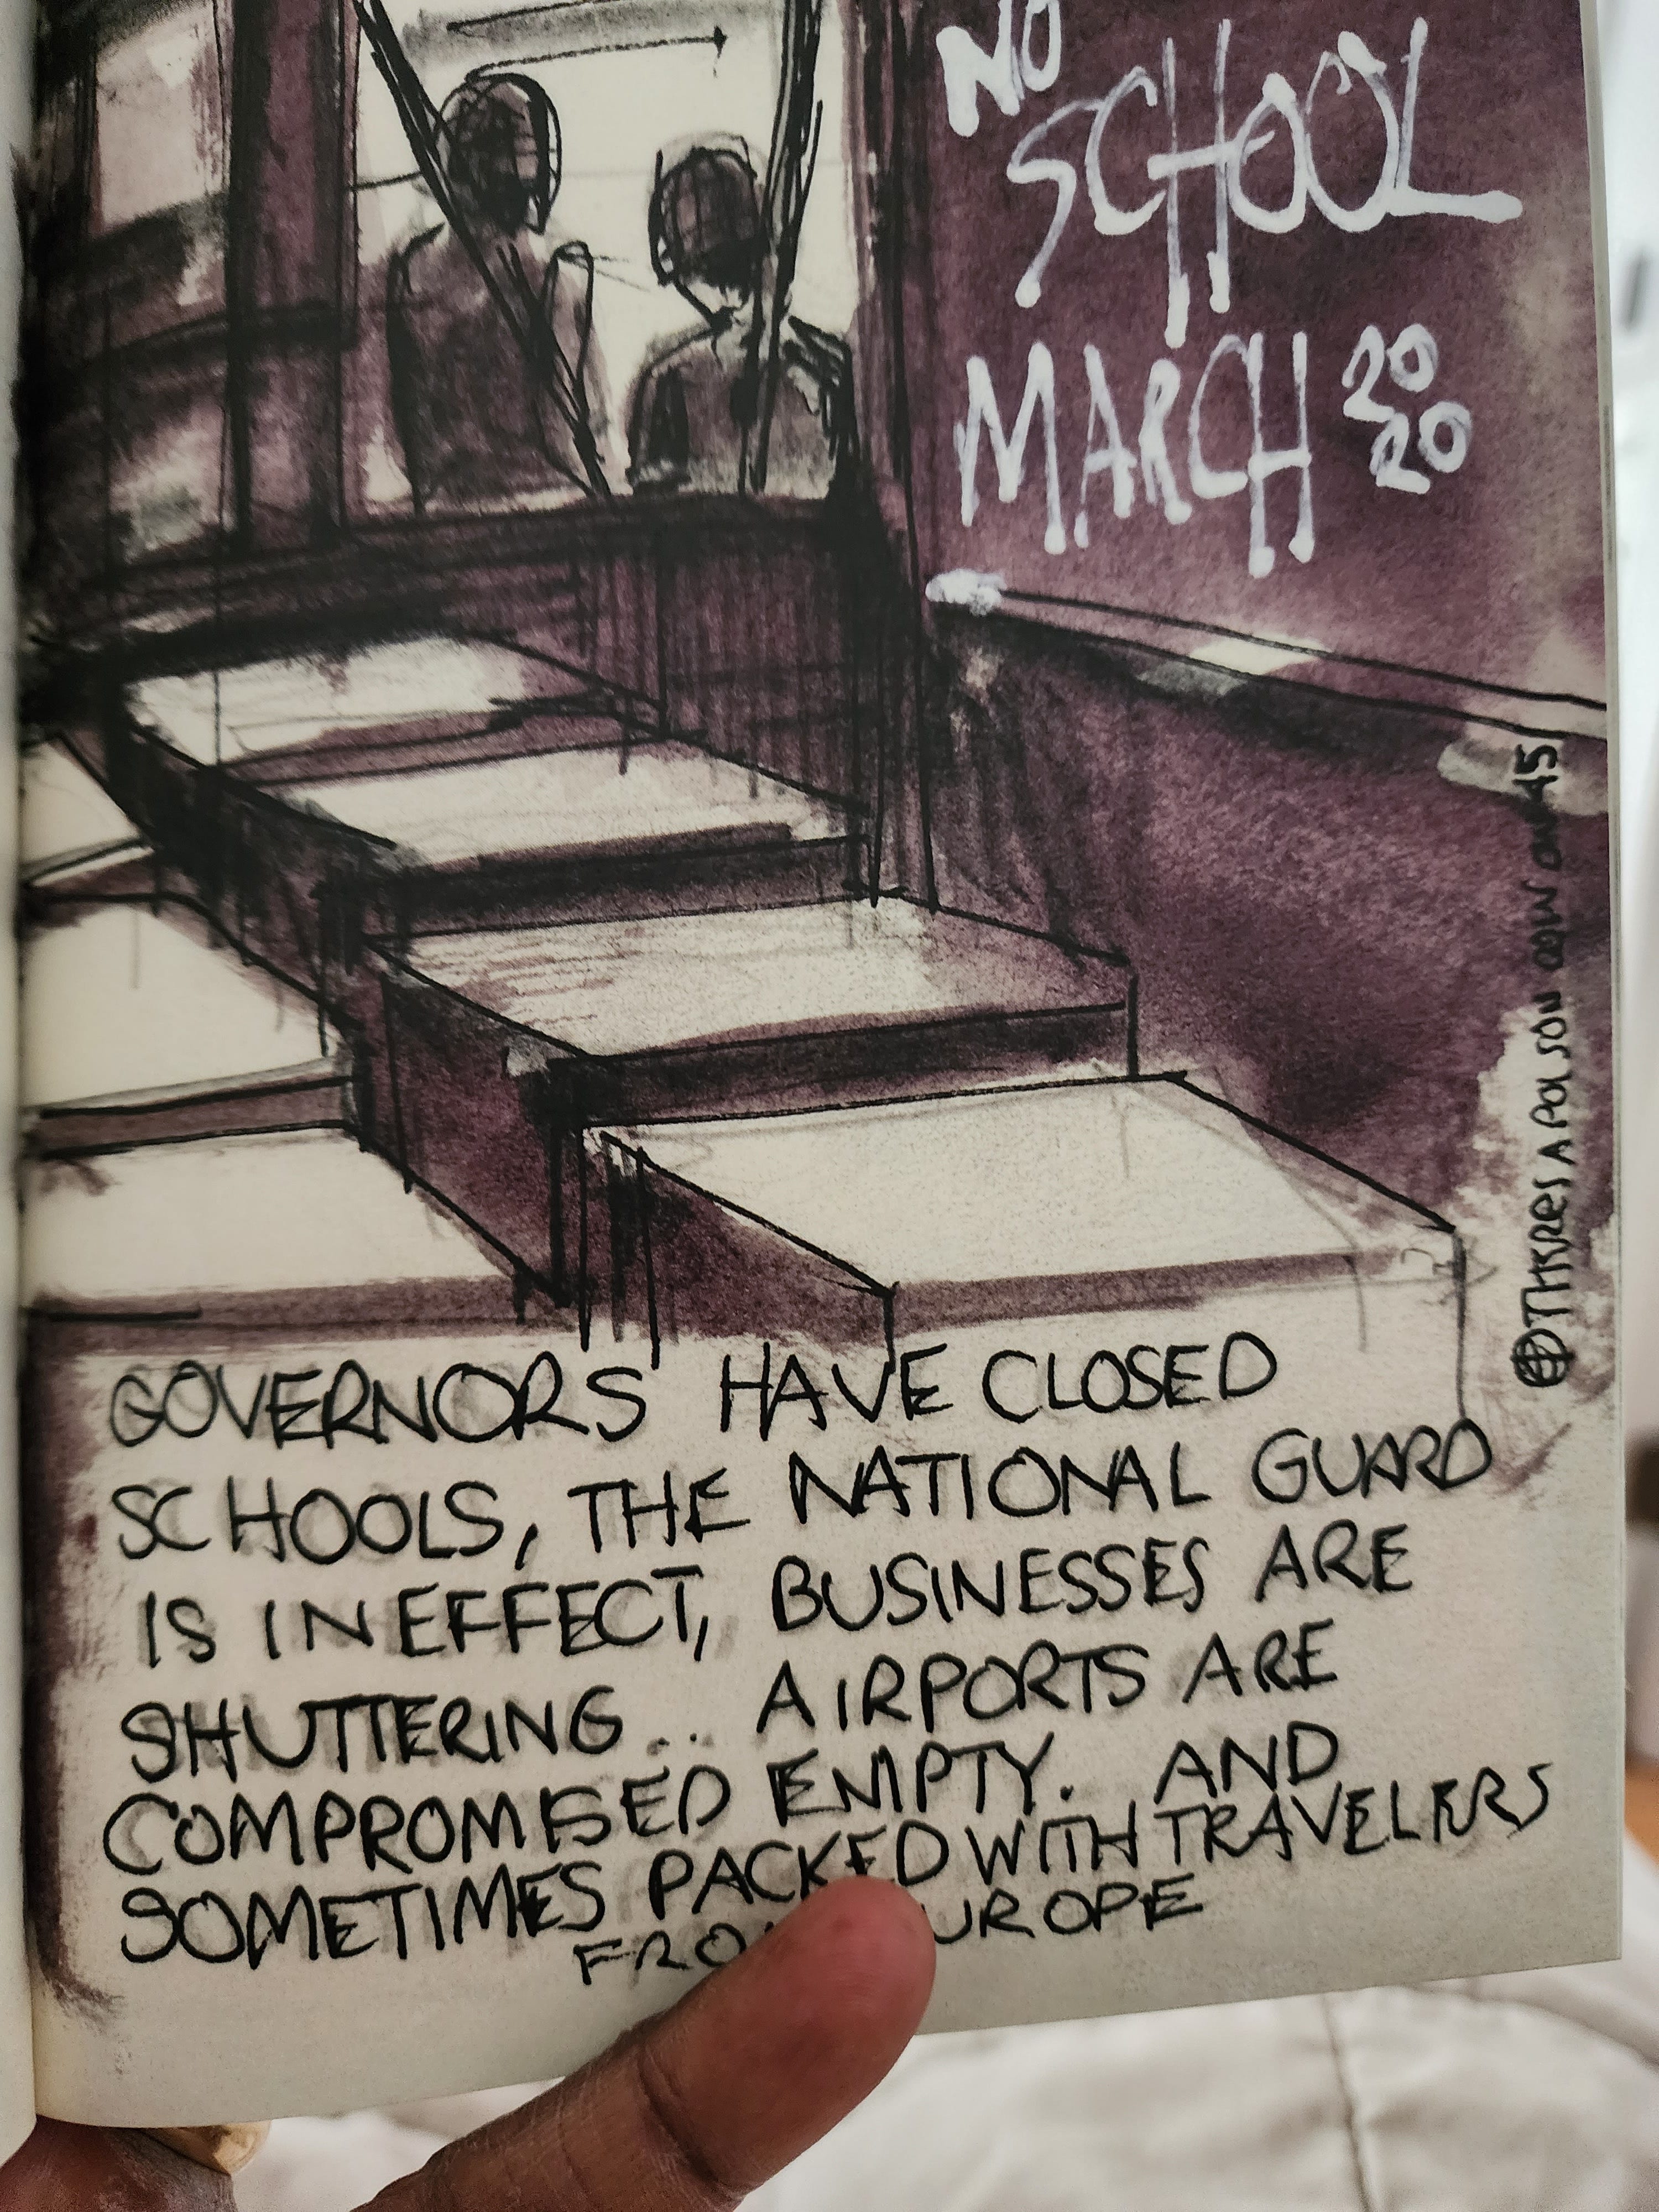 NO
SCHOOL
MARCH 20
20
GOVERNORS HAVE CLOSED
SCHOOLS, THE NATIONAL GUARD
IS IN EFFECT, BUSINESSES ARE
SHUTTERING.. AIRPORTS ARE
COMPROMISED EMPTY. AND
SOMETIMES PACKED WITH TRAVELERS